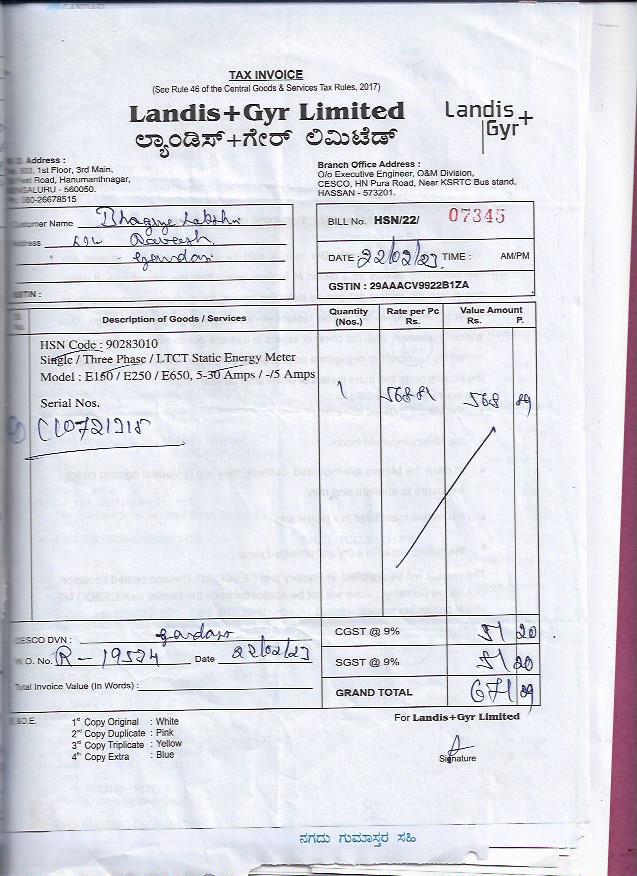 TAX INVOICE
(See Rule 46 of the Central Goods & Services Tax Rules, 2017)
Landis+Gyr Limited
ಲ್ಯಾಂಡಿಸ್+ಗೇರ್ ಲಿಮಿಟೆಡ್
Landis+
Gyr
Address :
1st Floor, 3rd Main,
Road, Hanumanthnagar,
- 560050.
080-26678515
Branch Office Address :
O/o Executive Engineer, O&M Division,
CESCO, HN Pura Road, Near KSRTC Bus stand,
HASSAN - 573201.
Customer Name
Address
GSTIN :
BILL No. HSN/22/ 07345
DATE : 22/02/23 TIME : AM/PM
GSTIN : 29AAACV9922B1ZA
Description of Goods / Services
Quantity (Nos.)
Rate per Pc Rs.
Value Amount Rs. P.
HSN Code : 90283010
Single / Three Phase / LTCT Static Energy Meter
Model : E150 / E250 / E650, 5-30 Amps / -/5 Amps
1
Serial Nos.
CESCO DVN :
W.O. No. R - 19524 Date 22/02/23
Total Invoice Value (In Words) :
CGST @ 9% 51 20
SGST @ 9% 51 20
GRAND TOTAL
E.&O.E.
1st Copy Original : White
2nd Copy Duplicate : Pink
3rd Copy Triplicate : Yellow
4th Copy Extra : Blue
For Landis+Gyr Limited
Signature
ನಗದು ಗುಮಾಸ್ತರ ಸಹಿ